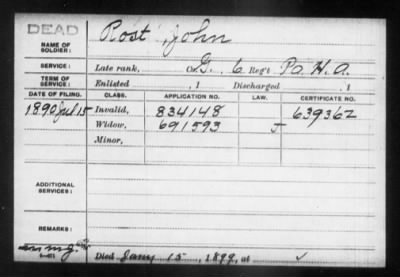 DEAD
NAME OF SOLDIER: Rost, John
SERVICE: Late rank, Co. G, 6 Reg't Pa. H. A.
TERM OF SERVICE: Enlisted , 1 Discharged , 1
DATE OF FILING. CLASS. APPLICATION NO. LAW. CERTIFICATE NO.
1890 Jul 15 Invalid, 834148 639362
Widow, 691593
Minor,
ADDITIONAL SERVICES:
REMARKS:
Died Jany 15, 1899, at